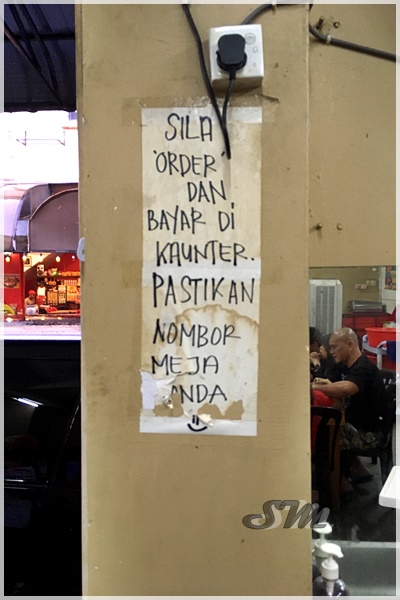 SILA
'ORDER'
DAN
BAYAR DI
KAUNTER.
PASTIKAN
NOMBOR
MEJA
ANDA
SM